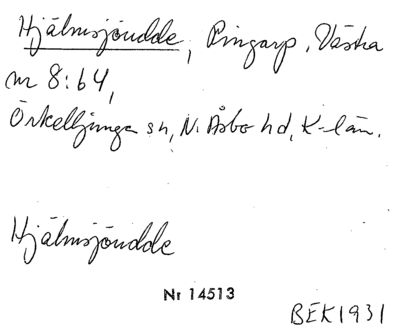 Hjälmsjöudde, Pingarp, Västra
nr 8:64,
Örkelljunga sn, N. Åsbo hd, K-län.
Hjälmsjöudde
Nr 14513
BEK1931